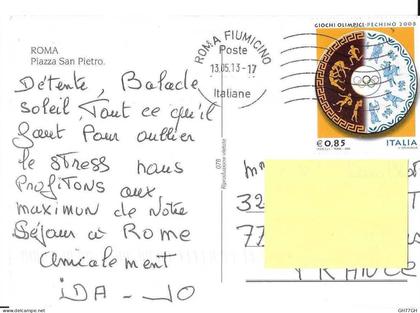 ROMA
Piazza San Pietro.
ROMA FIUMICINO
Poste
13.05.13-17
Italiane
GIOCHI OLIMPICI - PECHINO 2008
€0,85 ITALIA
Détente, Balade
soleil, Tout ce qu'il
faut Pour oublier
le stress nous
Profitons aux
maximum de Notre
Séjour à Rome
Amicalement
iDA - JO
078
Riproduzione vietata
32
77
FRANCE